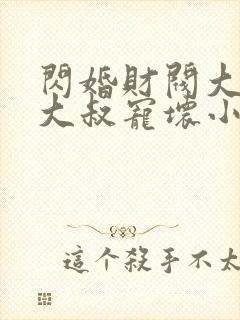 閃婚財閥大
大叔寵壞小
這个殺手不太